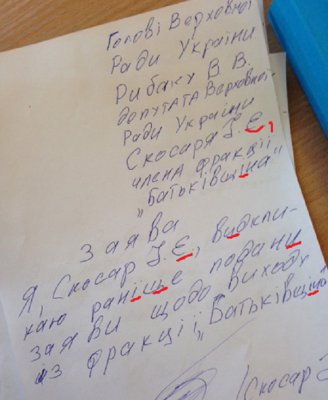 Голові Верховної
Ради України
Рибаку В. В.
депутата Верховної
Ради України
Скосаря І. Є,
члена фракції
„Батьківщіна"
Заява
Я, Скосар І. Є, видкли-
каю раніще подани
заяви щодо виходу
из фракції „Батьківщіна
/Скосар